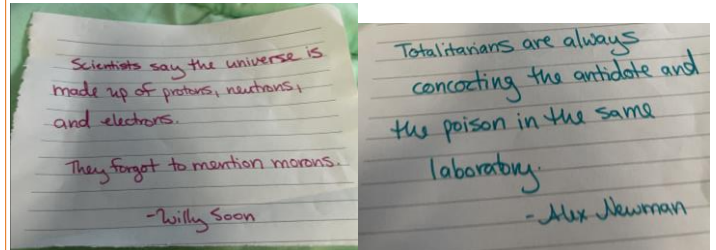 Scientists say the universe is
made up of protons, neutrons,
and electrons.
They forgot to mention morons.
-Willy Soon
Totalitarians are always
concocting the antidote and
the poison in the same
laboratory.
-Alex Newman